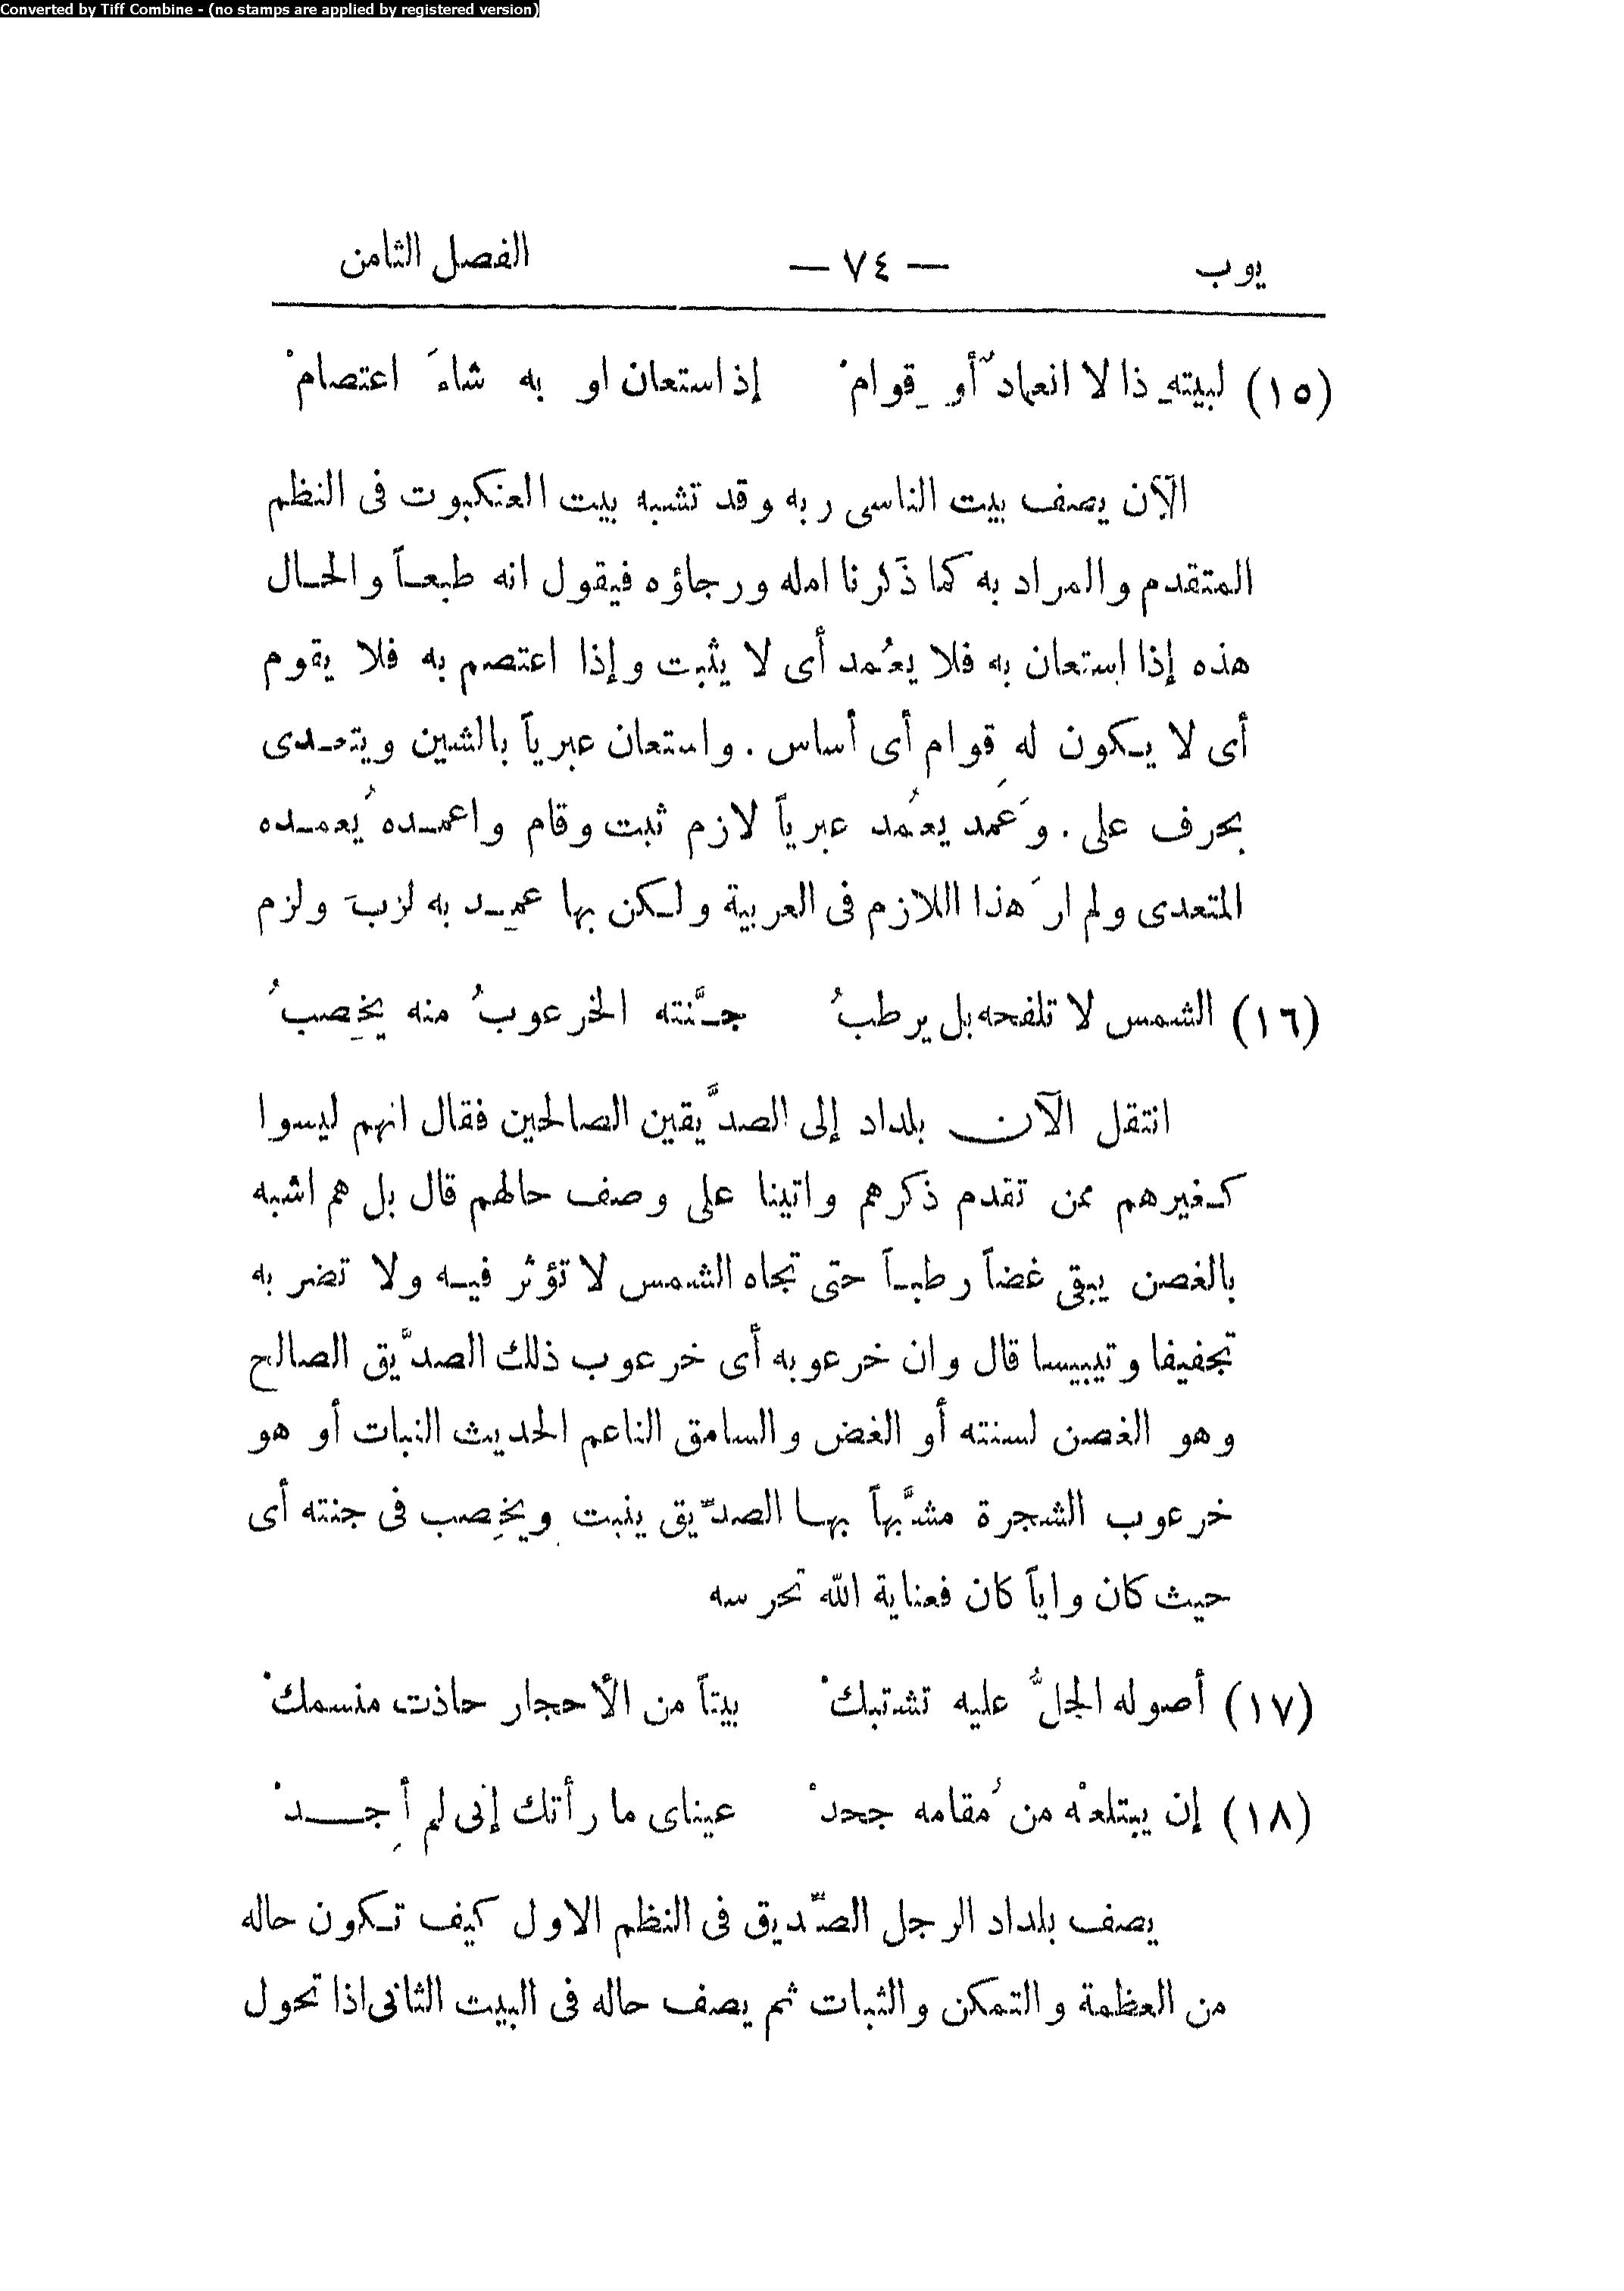 Converted by Tiff Combine - (no stamps are applied by registered version)
يوب — ٧٤ — الفصل الثامن
(١٥) لبيتهِ ذا لا انعمادٌ أو قِوامْ إذ استعان او به شاءَ اعتصامْ
الآن يصف بيت الناسى ربه وقد تشبه بيت العنكبوت فى النظم
المتقدم والمراد به كما ذَكرنا امله ورجاؤه فيقول انه طبعاً والحال
هذه إذا استعان به فلا يعُمد أى لا يثبت وإذا اعتصم به فلا يقوم
أى لا يكون له قوام أى أساس . واستعان عبرياً بالشين ويتعدى
بحرف على . وَعَمد يعمُد عبرياً لازم ثبت وقام واعمده يُعمده
المتعدى ولم ارَ هذا اللازم فى العربية ولكن بها عمِد به لزبَ ولزم
(١٦) الشمس لا تلفحه بل يرطبُ جنَّته الخرعوبُ منه يخِصبُ
انتقل الآن بلداد إلى الصدَّيقين الصالحين فقال انهم ليسوا
كغيرهم ممن تقدم ذكرهم واتينا على وصف حالهم قال بل هم اشبه
بالغصن يبقى غضاً رطباً حتى تجاه الشمس لا تؤثر فيه ولا تضر به
تجفيفا وتيبيسا قال وان خرعوبه أى خرعوب ذلك الصدَّيق الصالح
وهو الغصن لسنته أو الغض والسامق الناعم الحديث النبات أو هو
خرعوب الشجرة مشبَّهاً بها الصدّيق ينبت ويخِصب فى جنته أى
حيث كان واياً كان فعناية الله تحرسه
(١٧) أصوله الجلُّ عليه تشتبكْ بيتاً من الأحجار حاذت منسمكْ
(١٨) إن يبتلعْه من مُقامه جحدْ عيناى ما رأتك إنى لم أجِدْ
يصف بلداد الرجل الصّديق فى النظم الاول كيف تكون حاله
من العظمة والتمكن والثبات ثم يصف حاله فى البيت الثانى اذا تحول